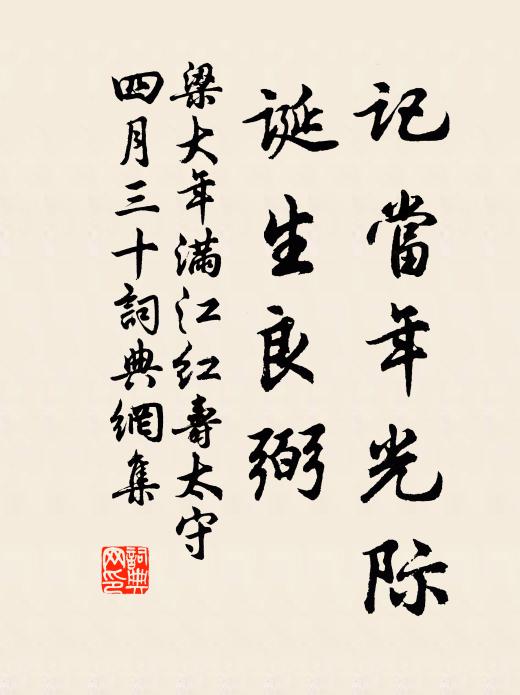 記當年光际
誕生良弼
梁大年满江红壽太守
四月三十詞典網集
詞典网印